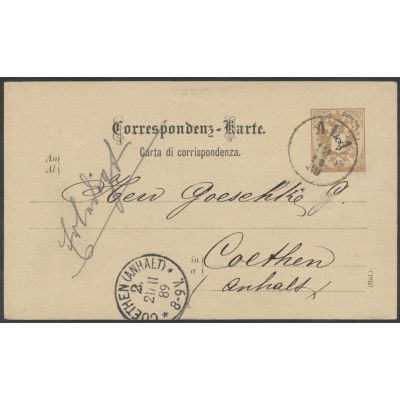 Correspondenz-Karte.
Carta di corrispondenza.
ALA
An
Al
Erledigt
Herr Goeschke
in
a
Coethen
(Anhalt)
(Ital.)
COETHEN (ANHALT) * 8-9 V. *
2.
21/11
89